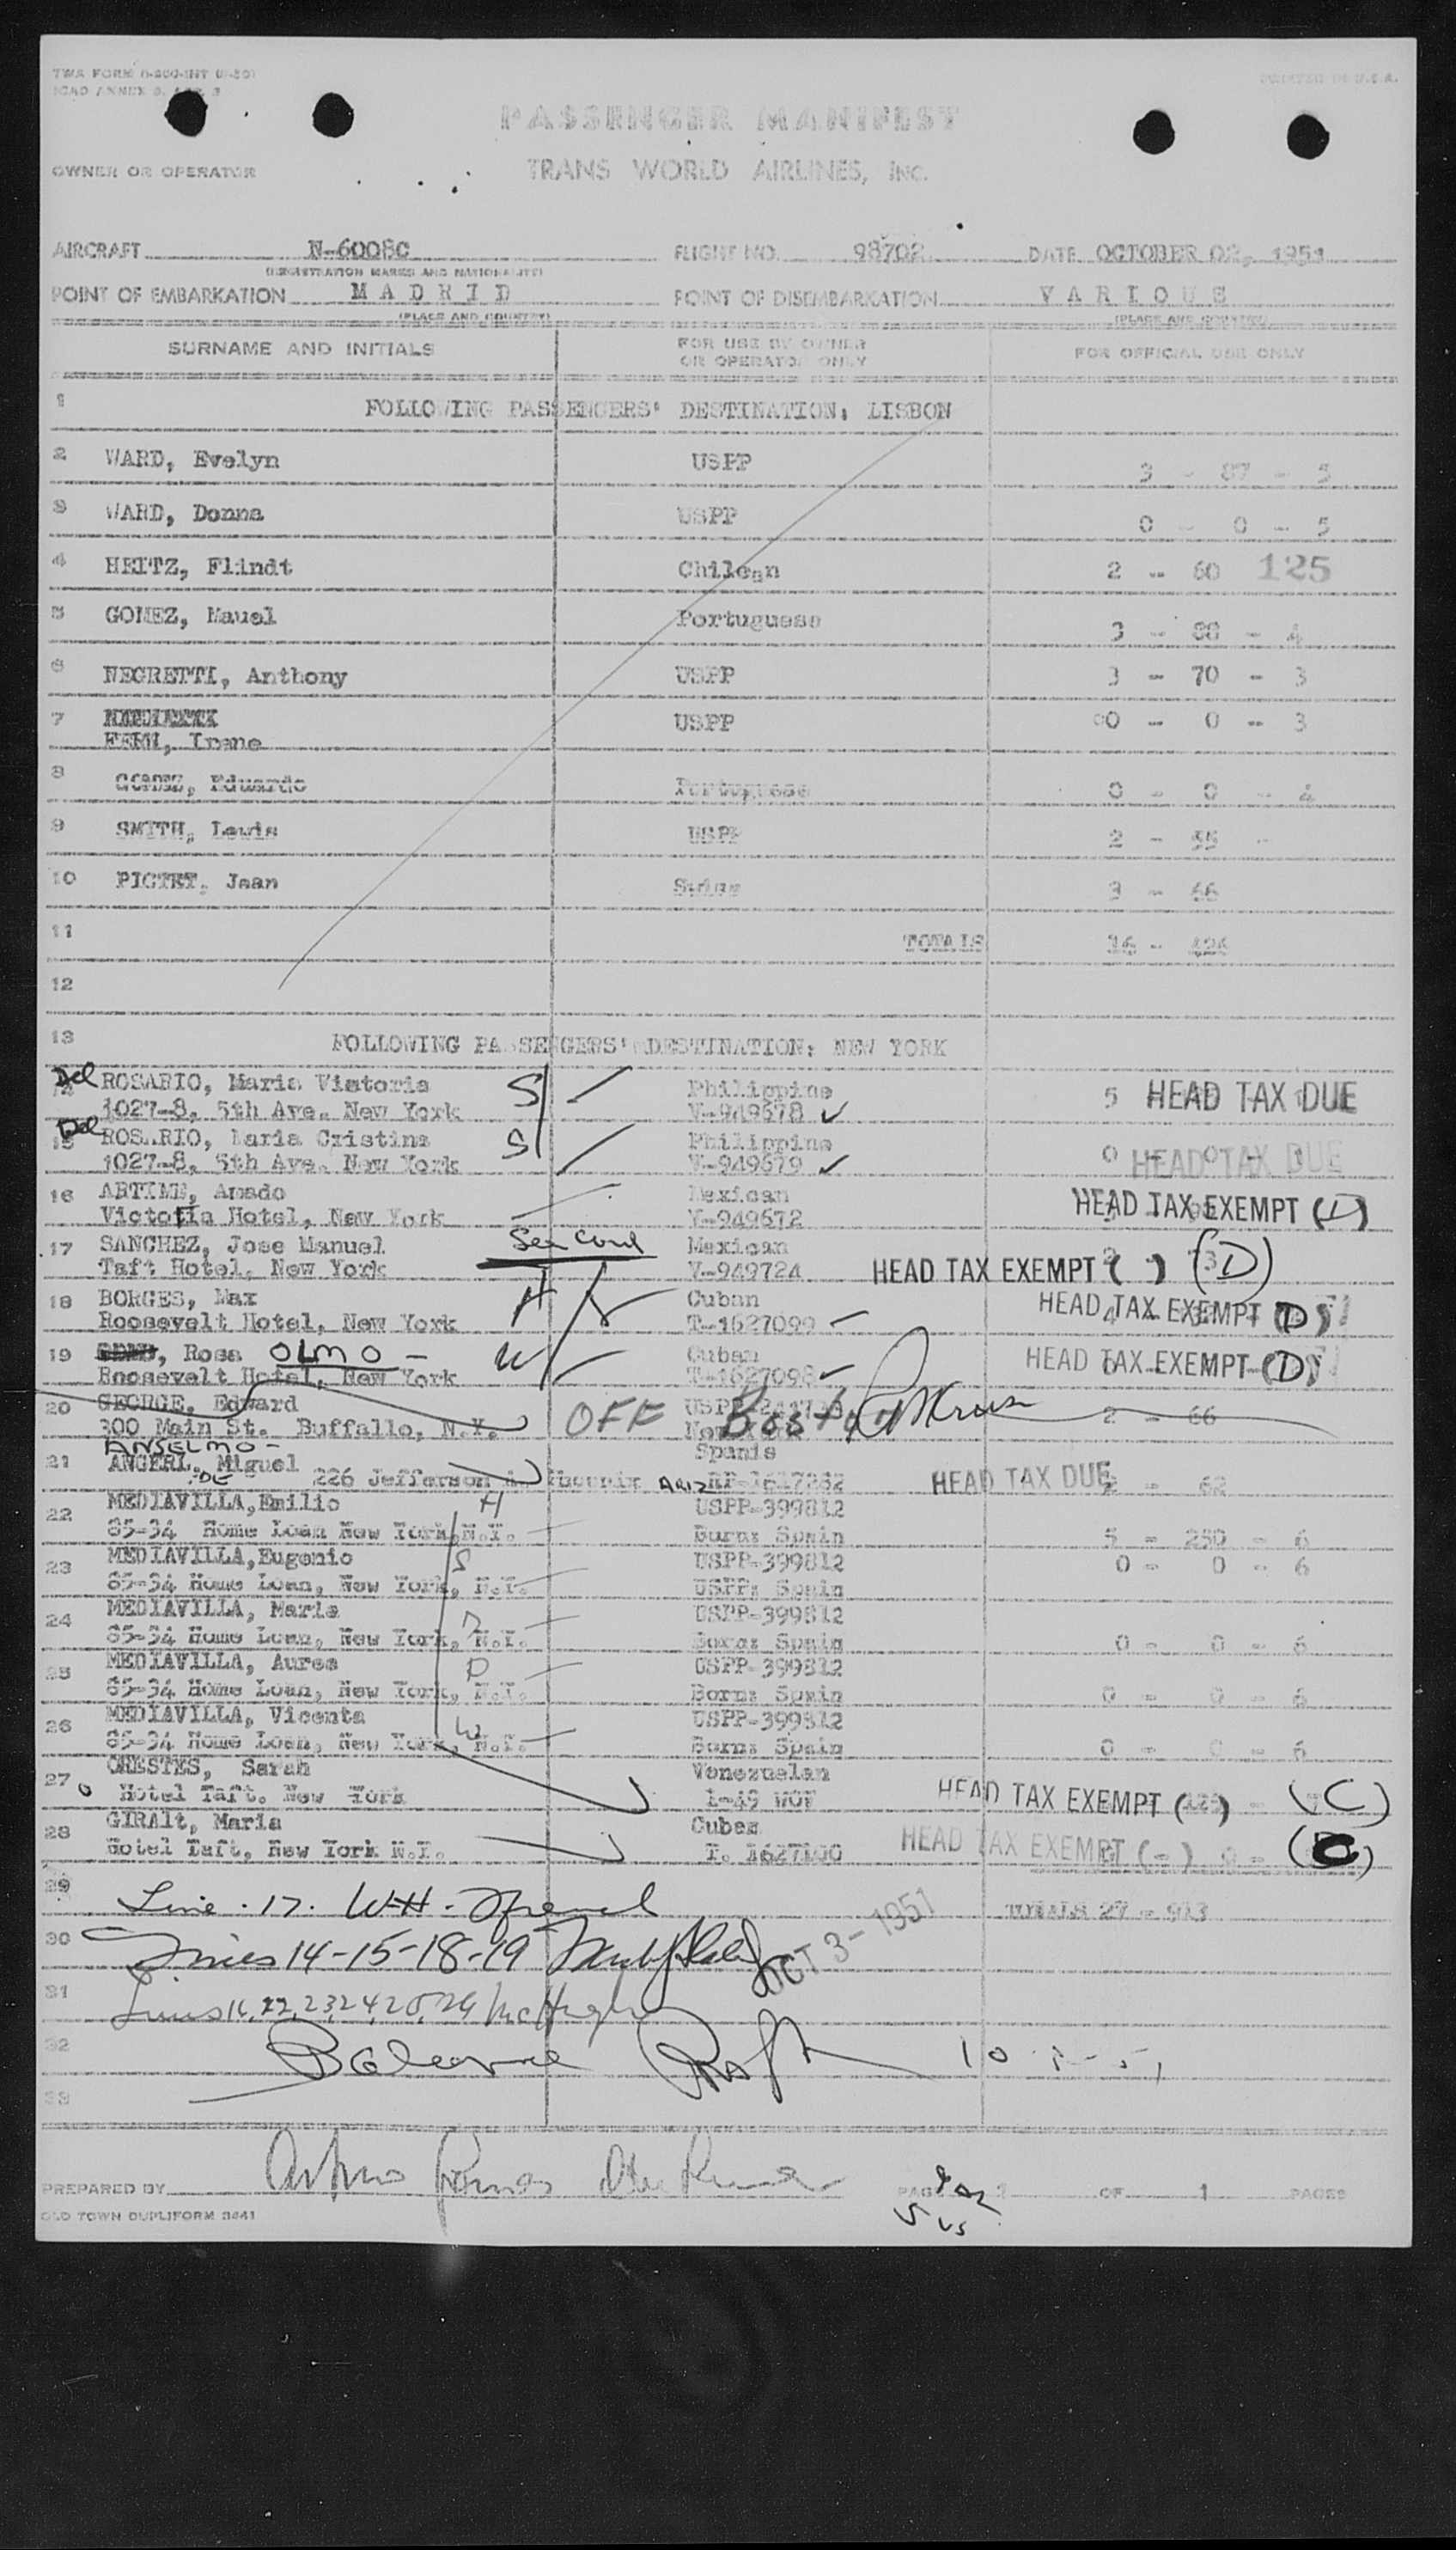 PRINTED IN U.S.A.
PASSENGER MANIFEST
OWNER OR OPERATOR TRANS WORLD AIRLINES, INC.
AIRCRAFT N-6008C FLIGHT NO. 98702 DATE OCTOBER 02, 1951
(REGISTRATION MARKS AND NATIONALITY)
POINT OF EMBARKATION M A D R I D POINT OF DISEMBARKATION V A R I O U S
(PLACE AND COUNTRY) (PLACE AND COUNTRY)
SURNAME AND INITIALS FOR USE BY OWNER OR OPERATOR ONLY FOR OFFICIAL USE ONLY
1 FOLLOWING PASSENGERS' DESTINATION: LISBON
2 WARD, Evelyn USPP 3 - 87 - 5
3 WARD, Donna USPP 0 - 0 - 5
4 HEITZ, Flindt Chilean 2 - 60 125
5 GOMEZ, Mauel Portuguese 3 - 88 - 4
6 NEGRETTI, Anthony USPP 3 - 70 - 3
7 USPP 00 - 0 - 3
FERM, Irene
8 Eduardo Portuguese 0 - 0 - 4
9 SMITH, Lewis USPP 2 - 55 -
10 PICTET, Jean Swiss 3 - 66
11 TOTALS
12
13 FOLLOWING PASSENGERS' DESTINATION: NEW YORK
Del ROSARIO, Maria Victoria S Philippine 5 HEAD TAX DUE
1027-8, 5th Ave. New York V-949678 ✓
Del ROSARIO, Maria Cristina S Philippine 0 HEAD TAX DUE
1027-8, 5th Ave. New York V-949679 ✓
16 ARTIME, Amado Mexican HEAD TAX EXEMPT (D)
Victoria Hotel, New York V-949672
17 SANCHEZ, Jose Manuel See Cond Mexican
Taft Hotel, New York V-949724 HEAD TAX EXEMPT ( ) (D)
18 BORGES, Max H Cuban HEAD TAX EXEMPT (D)
Roosevelt Hotel, New York T-1627099
19 Rosa OLMO - W Cuban HEAD TAX EXEMPT (D)
Roosevelt Hotel, New York T-1627098
20 GEORGE, Edward OFF Boston 2 - 66
300 Main St. Buffallo, N.Y. New York
ANSELMO - Spanis
21 ANGERI, DE Miguel
226 Jefferson Phoenix ARIZ RP-1617262 HEAD TAX DUE 2 - 62
22 MEDIAVILLA, Emilio H USPP-399812
85-34 Home Loan New York, N.Y. Born: Spain 5 - 250 - 6
23 MEDIAVILLA, Eugenio S USPP-399812 0 - 0 - 6
85-34 Home Loan, New York, N.Y. USPP: Spain
24 MEDIAVILLA, Maria D USPP-399812
85-34 Home Loan, New York, N.Y. Born: Spain 0 - 0 - 6
25 MEDIAVILLA, Aurea D USPP-399812
85-34 Home Loan, New York, N.Y. Born: Spain 0 - 0 - 6
26 MEDIAVILLA, Vicenta W USPP-399812
85-34 Home Loan, New York, N.Y. Born: Spain 0 - 0 - 6
27 ORESTES, Sarah Venezuelan
Hotel Taft. New York HEAD TAX EXEMPT ( ) (C)
28 GIRALt, Maria Cuban
Hotel Taft, New York N.Y. T. 1627100 HEAD TAX EXEMPT (-) (C)
29 Line . 17. TOTALS 27 - 913
30 Lines 14-15-18-19 OCT 3 - 1951
31 Lines 16, 22, 23, 24, 25, 26 McHugh
32 Balance
33
PREPARED BY PAGE 1 OF 1 PAGES
OLD TOWN DUPLIFORM 3441